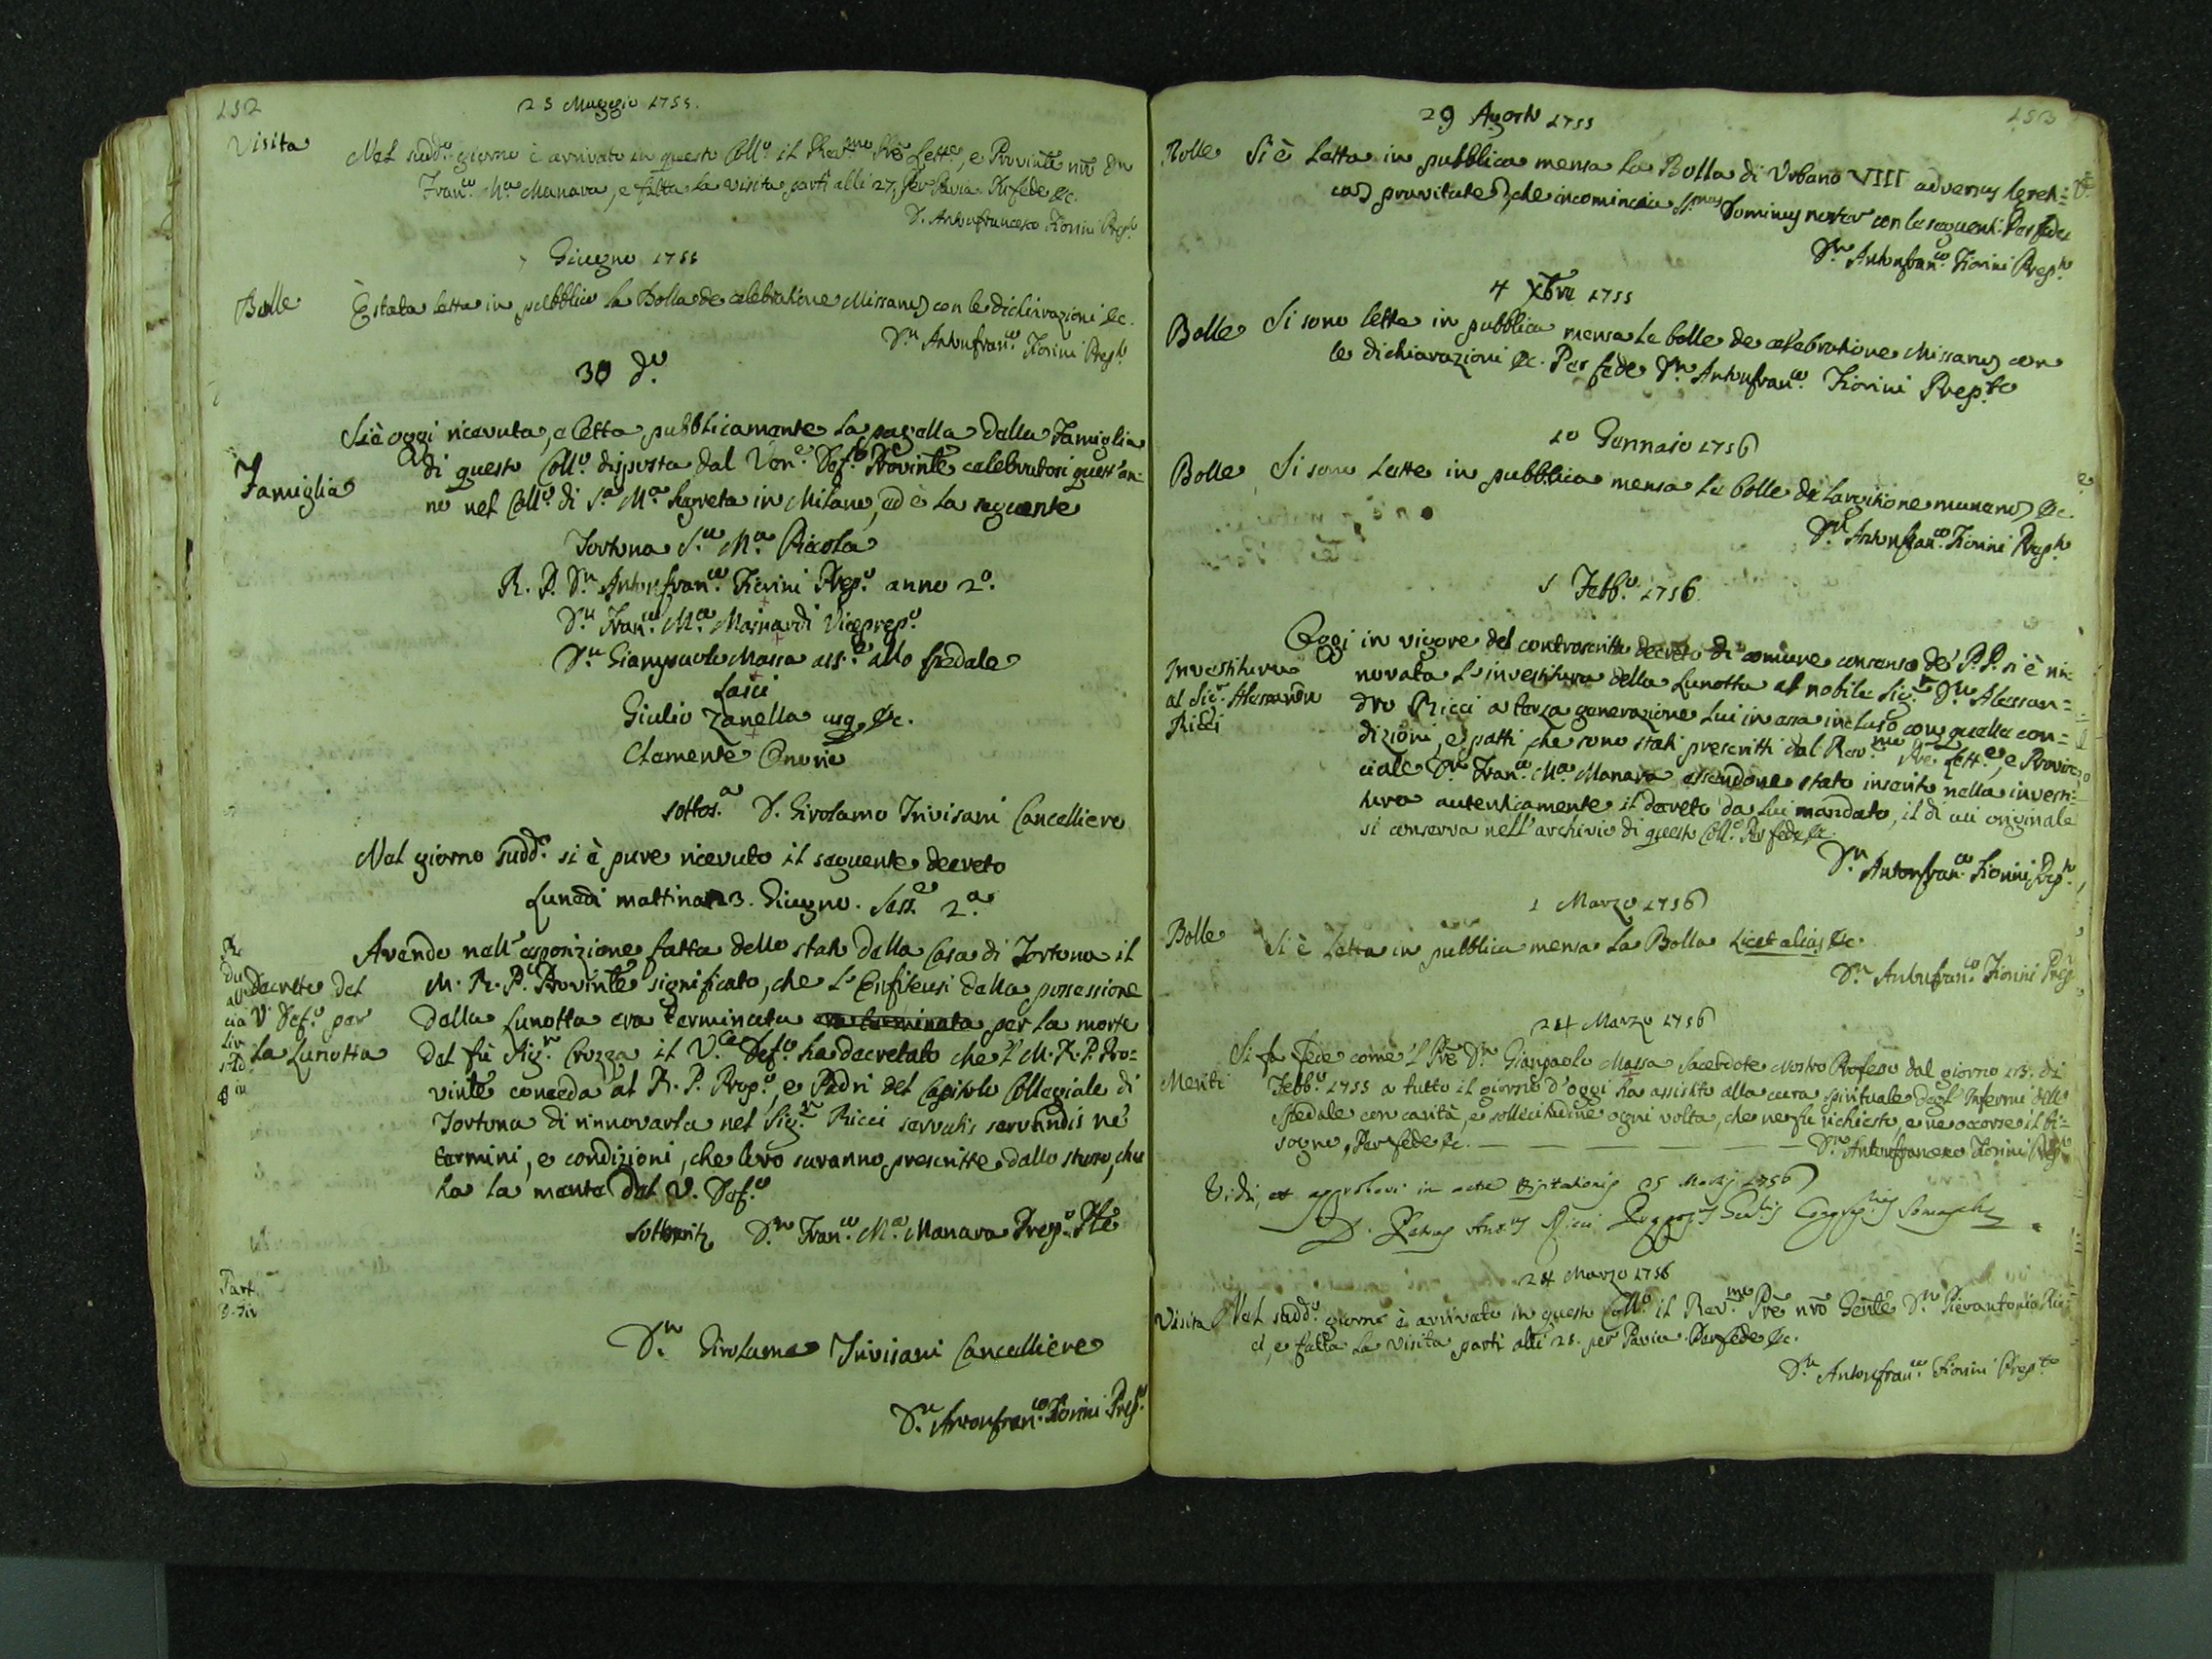 152
23 Maggio 1755.
Visita
Nel sudd.o giorno è arrivato in questo Coll.o il Rev.mo Pre Lett.e, e Provinle nro Dn
Fran.co M.a Manara, e fatta la visita partì alli 27 per Pavia. Per fede &c.
D. Antonfrancesco Fiorini Prep.to
7 Giugno 1755
Bolle
È stata letta in pubblico la Bolla de celebratione Missarum con le dichiarazioni &c.
D.n Antonfran.co Fiorini Prep.to
30 d.o
Famiglia
Si è oggi ricevuta, e letta pubblicamente la pagella della Famiglia
di questo Coll.o disposta dal Ven.e Def.o Provinle celebratosi quest'an-
no nel Coll.o di S.a M.a Segreta in Milano, ed è la seguente
Tortona S.a M.a Piccola
R. P. D.n Antonfran.co Fiorini Prep.o anno 2.o
D.n Fran.co M.a Mainardi Viceprep.o
D.n Giampaolo Massa ass.e allo spedale
Laici
Giulio Zanella usq. &c.
Clemente Bnorie
sottos.a D. Girolamo Trivisani Cancelliere
Nel giorno sudd.o si è pure ricevuto il seguente decreto
Lunedì mattina 23. Giugno. Sess.e 2.a
Decreto del
V. Def.o per
la Lunotta
Avendo nell'esposizione fatta dello stato della Casa di Tortona il
M. R. P. Provinle significato, che l'Enfiteusi della possessione
della Lunotta era terminata era terminata per la morte
del fù Sig.r Crozza il V.e Def.o ha decretato che 'l M. R. P. Pro=
vinle conceda al R. P. Prep.o, e Padri del Capitolo Collegiale di
Tortona di rinnovarla nel Sig.r Ricci servatis servandis ne'
termini, e condizioni, che loro saranno prescritte dallo stesso, che
ha la mente del V. Def.o
sottoscritt. D.n Fran.co M.a Manara Prep.o Ple
D.n Girolamo Trivisani Cancelliere
D.n Antonfran.co Fiorini Prep.o
153
29 Agosto 1755
Bolle
Si è letta in pubblica mensa la Bolla di Urbano VIII adversus hereti=
cam pravitatem, che incomincia SS.mus Dominus noster con le seguenti. Per fede
D.n Antonfran.co Fiorini Prep.to
4 Xbre 1755
Bolle
Si sono lette in pubblica mensa le bolle de celebratione Missarum con
le dichiarazioni &c. Per fede D.n Antonfran.co Fiorini Prep.to
10 Gennaio 1756
Bolle
Si sono lette in pubblica mensa le bolle de largitione munerum &c.
D.n Antonfran.co Fiorini Prep.to
5 Febb.o 1756
Investitura
al Sig.r Alessandro
Ricci
Oggi in vigore del controscritto decreto di comune consenso de' P.P. si è ri-
novata l'investitura della Lunotta al nobile Sig.r D.n Alessan=
dro Ricci a terza generazione lui in essa incluso con quelle con=
dizioni, e patti, che sono stati prescritti dal Rev.mo Pre Lett.e, e Provin=
ciale D.n Fran.co M.a Manara essendone stato inserito nella investi=
tura autenticamente il decreto da lui mandato, il di cui originale
si conserva nell'archivio di questo Coll.o Per fede &c.
D.n Antonfran.co Fiorini Prep.to
1 Marzo 1756
Bolle
Si è letta in pubblica mensa la Bolla Licet alias &c.
D.n Antonfran.co Fiorini Prep.
24 Marzo 1756
Meriti
Si fa fede come 'l Pre D.n Gianpaolo Massa Sacerdote nostro Professo dal giorno 13. di
Febb.o 1755 a tutto il giorno d'oggi ha assistito alla cura spirituale degl'Infermi dello
Spedale con carità, e sollecitudine ogni volta, che ne fu richiesto, e ne occorse il bi=
sogno. Per fede &c. D.n Antonfrancesco Fiorini Prep.to
Vidi, et approbavi in actu visitationis 25 Martij 1756
D. Petrus Ant.us Ricci Praepos.us Gen.lis Congreg.nis Somasch.
24 Marzo 1756
Visita
Nel sudd.o giorno è arrivato in questo Coll.o il Rev.mo Pre nro Genle D.n Pierantonio Ric=
ci, e fatta la visita partì alli 28. per Pavia. Per fede &c.
D.n Antonfran.co Fiorini Prep.to